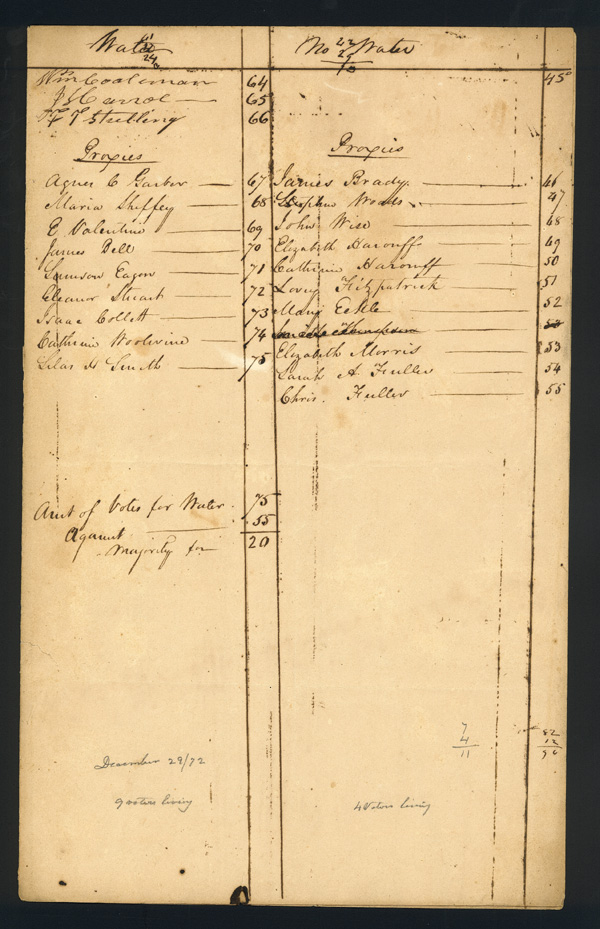 Water
24
No Water
22
29
Wm Coaleman 64
J S Carrol 65
F T Stribling 66
45
Proxies
Agnes C Garber 67
Maria Sheffey 68
E Valentine 69
James Bell 70
Samson Eagon 71
Eleanor Stuart 72
Isaac Collett 73
Catherine Woolwine 74
Silas H Smith 75
Proxies
James Brady 46
Woods 47
John Wise 48
Elizabeth Harouff 49
Catherine Harouff 50
Lovey Fitzpatrick 51
Mary Eskle 52
Elizabeth Morris 53
Sarah A Fuller 54
Chris. Fuller 55
Amt of Votes for Water 75
Against 55
Majority for 20
7
4
11
82
12
December 29/72
9 voters living
4 Voters living